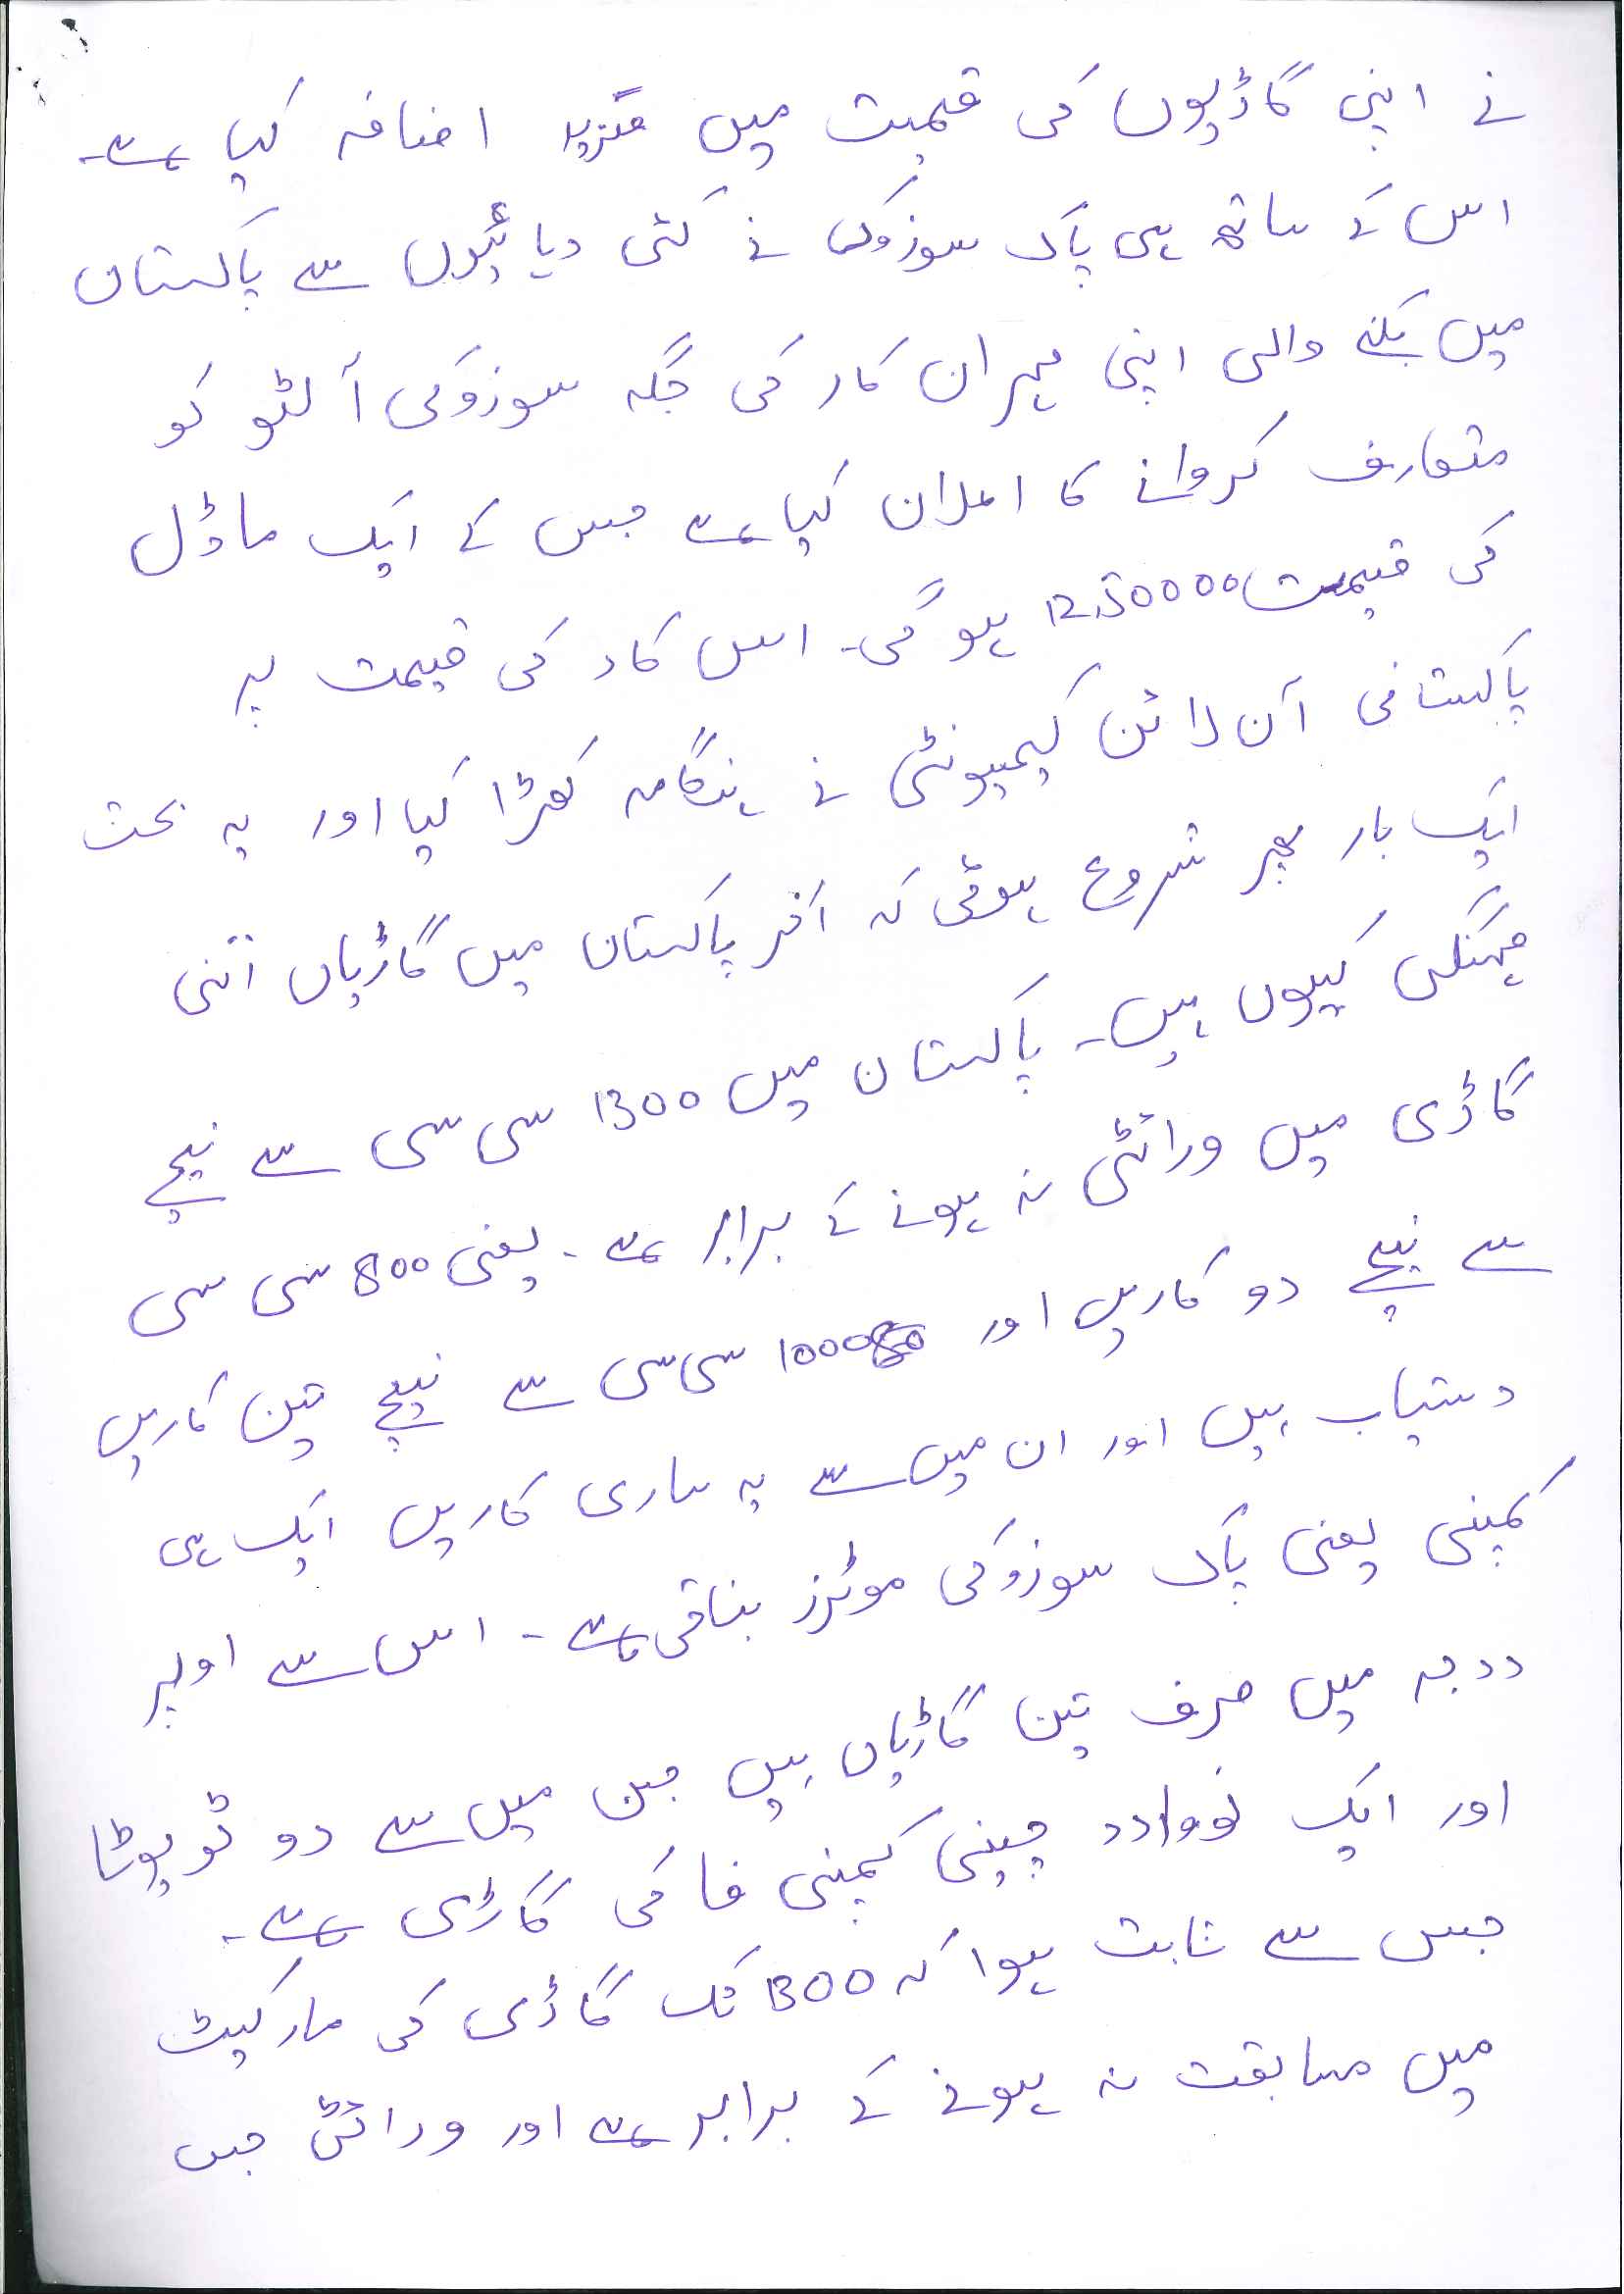 نے اپنی گاڑیوں کی قیمت میں مزید اضافہ کیا ہے۔
اس کے ساتھ ہی پاک سوزوکی نے کئی دہائیوں سے پاکستان
میں بکنے والی اپنی مہران کار کی جگہ سوزوکی آلٹو کو
متعارف کروانے کا اعلان کیا ہے جس کے ایک ماڈل
کی قیمت 1250000 ہو گی۔ اس کار کی قیمت پر
پاکستانی آن لائن کیمیونٹی نے ہنگامہ کھڑا کیا اور یہ بحث
ایک بار پھر شروع ہوئی کہ آخر پاکستان میں گاڑیاں اتنی
مہنگی کیوں ہیں۔ پاکستان میں 1300 سی سی سے نیچے
گاڑی میں ورائٹی نہ ہونے کے برابر ہے۔ یعنی 800 سی سی
سے نیچے دو کاریں اور 1000 سی سی سے نیچے تین کاریں
دستیاب ہیں اور ان میں سے یہ ساری کاریں ایک ہی
کمپنی یعنی پاک سوزوکی موٹرز بناتی ہے۔ اس سے اوپر
درجہ میں صرف تین گاڑیاں ہیں جن میں سے دو ٹویوٹا
اور ایک نووارد چینی کمپنی فا کی گاڑی ہے۔
جس سے ثابت ہوا کہ 1300 تک گاڑی کی مارکیٹ
میں مسابقت نہ ہونے کے برابر ہے اور ورائٹی جس